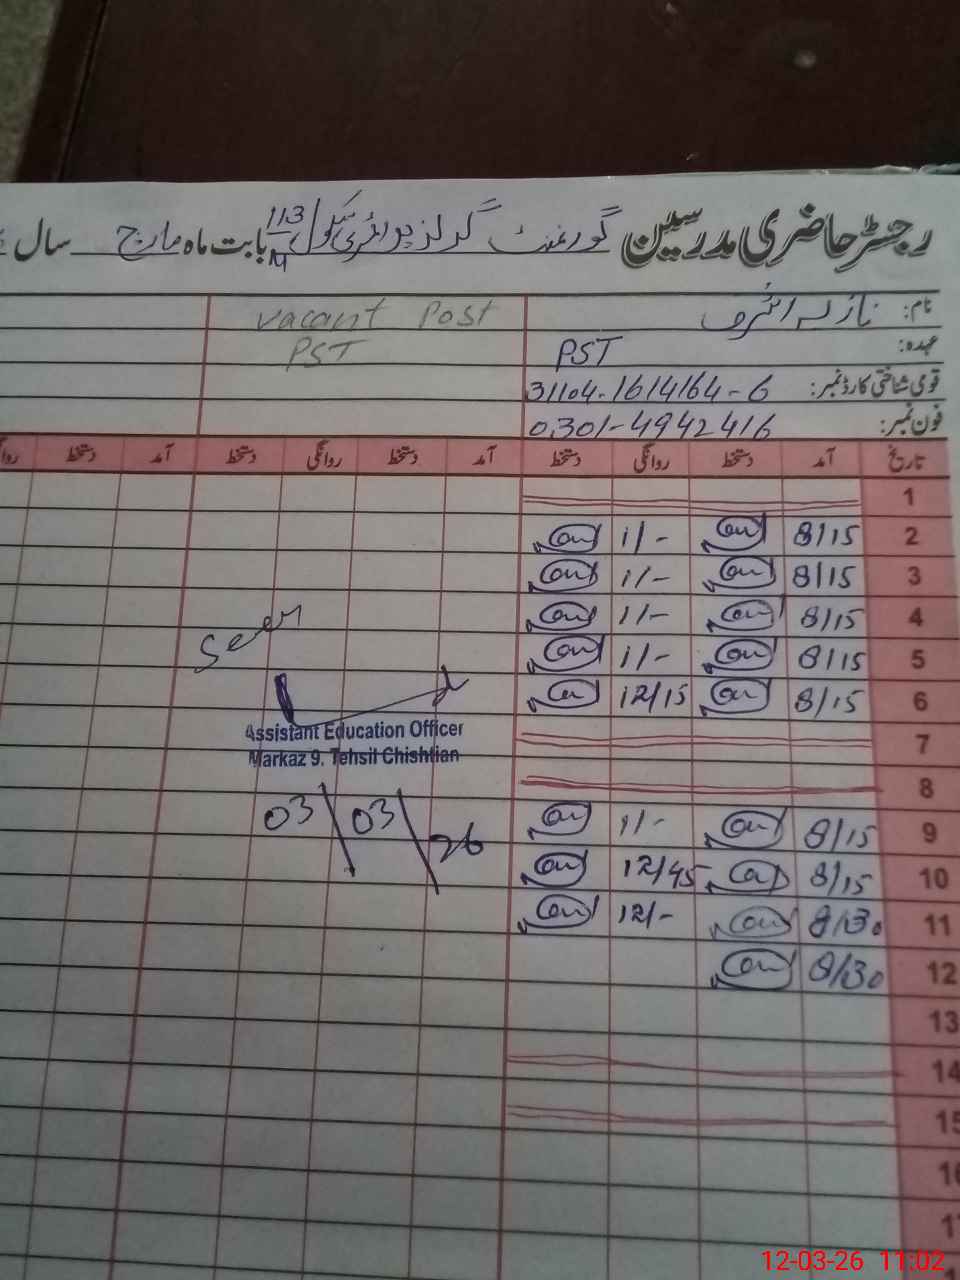 رجسٹر حاضری مدرسین گورنمنٹ گرلز پرائمری سکول 113/M بابت ماہ مارچ سال
نام: نازلہ اشرف vacant Post
عہدہ: PST PST
قومی شناختی کارڈ نمبر: 31104-1614164-6
فون نمبر: 0301-4942416
تاریخ آمد دستخط روانگی دستخط آمد دستخط روانگی دستخط آمد دستخط
1
2 8/15 1/-
3 8/15 1/-
4 8/15 1/-
5 8/15 1/-
6 8/15 12/15
7
8
9 8/15 1/-
10 8/15 12/45
11 8/30 12/-
12 8/30
13
14
15
16
17
Seen
Assistant Education Officer
Markaz 9. Tehsil Chishtian
03/03/26
12-03-26 11:02